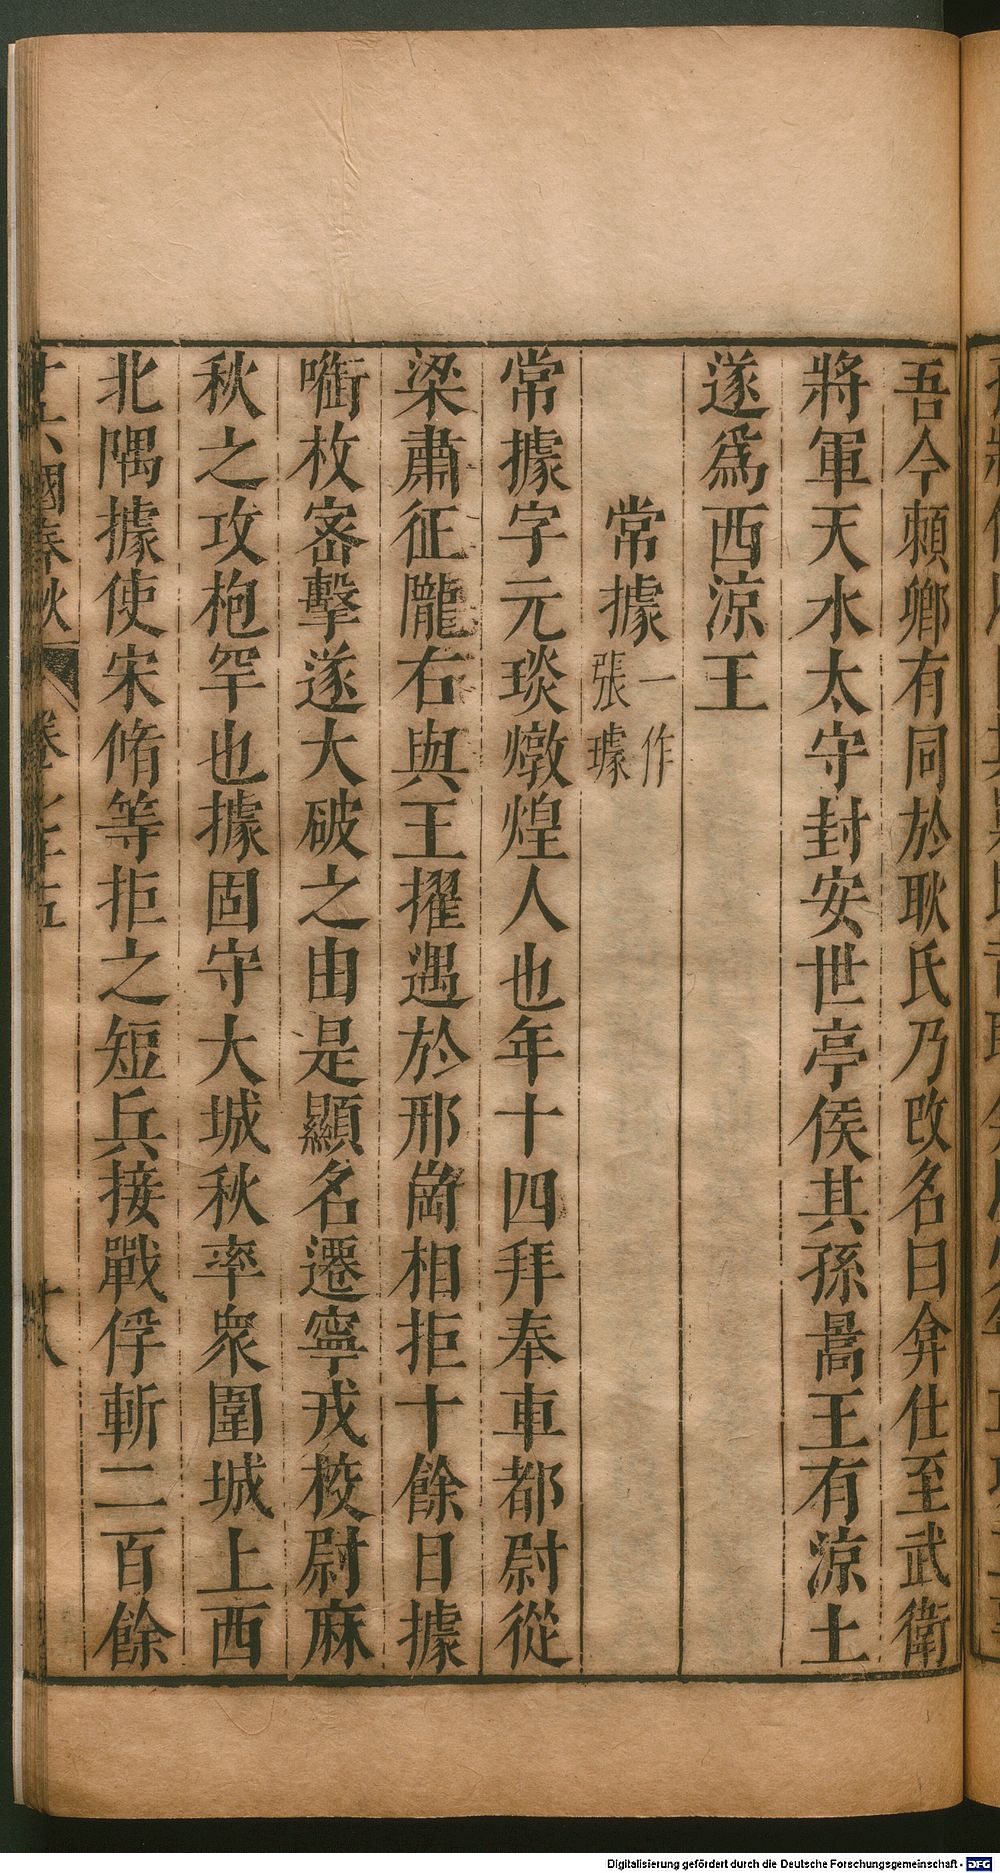 吾今頼鄉有同於耿氏乃改名曰弇仕至武衛
將軍天水太守封安世亭侯其孫暠王有涼土
遂爲西涼王
常據一作張璩
常據字元琰燉煌人也年十四拜奉車都尉從
梁肅征隴右與王擢遇於邢崗相拒十餘日據
㗸枚宻擊遂大破之由是顯名遷寧戎校尉麻
秋之攻枹罕也據固守大城秋率衆圍城上西
北隅據使宋脩等拒之短兵接戰俘斬二百餘
十六國春秋 卷七十五 十八
Digitalisierung gefördert durch die Deutsche Forschungsgemeinschaft - DFG